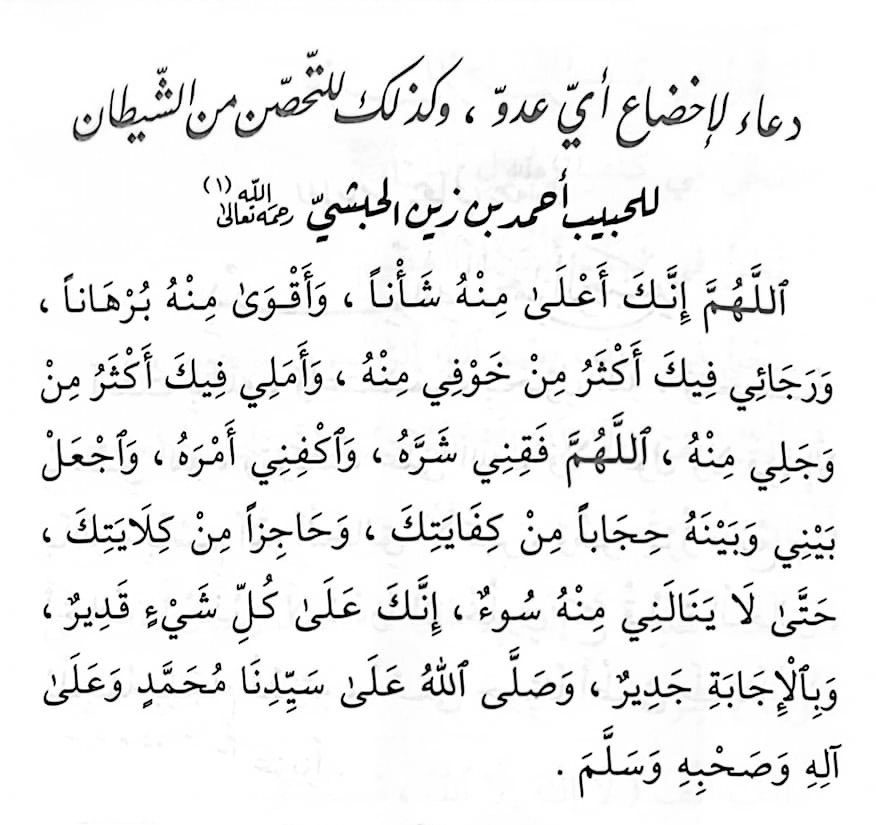 دعاء لإخضاع أيّ عدوّ ، وكذلك للتّحصّن من الشّيطان
للحبيب أحمد بن زين الحبشيّ رحمه الله تعالىٰ (١)
ٱللَّهُمَّ إِنَّكَ أَعْلَىٰ مِنْهُ شَأْناً ، وَأَقْوَىٰ مِنْهُ بُرْهَاناً ،
وَرَجَائِي فِيكَ أَكْثَرُ مِنْ خَوْفِي مِنْهُ ، وَأَمَلِي فِيكَ أَكْثَرُ مِنْ
وَجَلِي مِنْهُ ، ٱللَّهُمَّ فَقِنِي شَرَّهُ ، وَٱكْفِنِي أَمْرَهُ ، وَٱجْعَلْ
بَيْنِي وَبَيْنَهُ حِجَاباً مِنْ كِفَايَتِكَ ، وَحَاجِزاً مِنْ كِلَايَتِكَ ،
حَتَّىٰ لَا يَنَالَنِي مِنْهُ سُوءٌ ، إِنَّكَ عَلَىٰ كُلِّ شَيْءٍ قَدِيرٌ ،
وَبِٱلْإِجَابَةِ جَدِيرٌ ، وَصَلَّى ٱللهُ عَلَىٰ سَيِّدِنَا مُحَمَّدٍ وَعَلَىٰ
آلِهِ وَصَحْبِهِ وَسَلَّمَ .